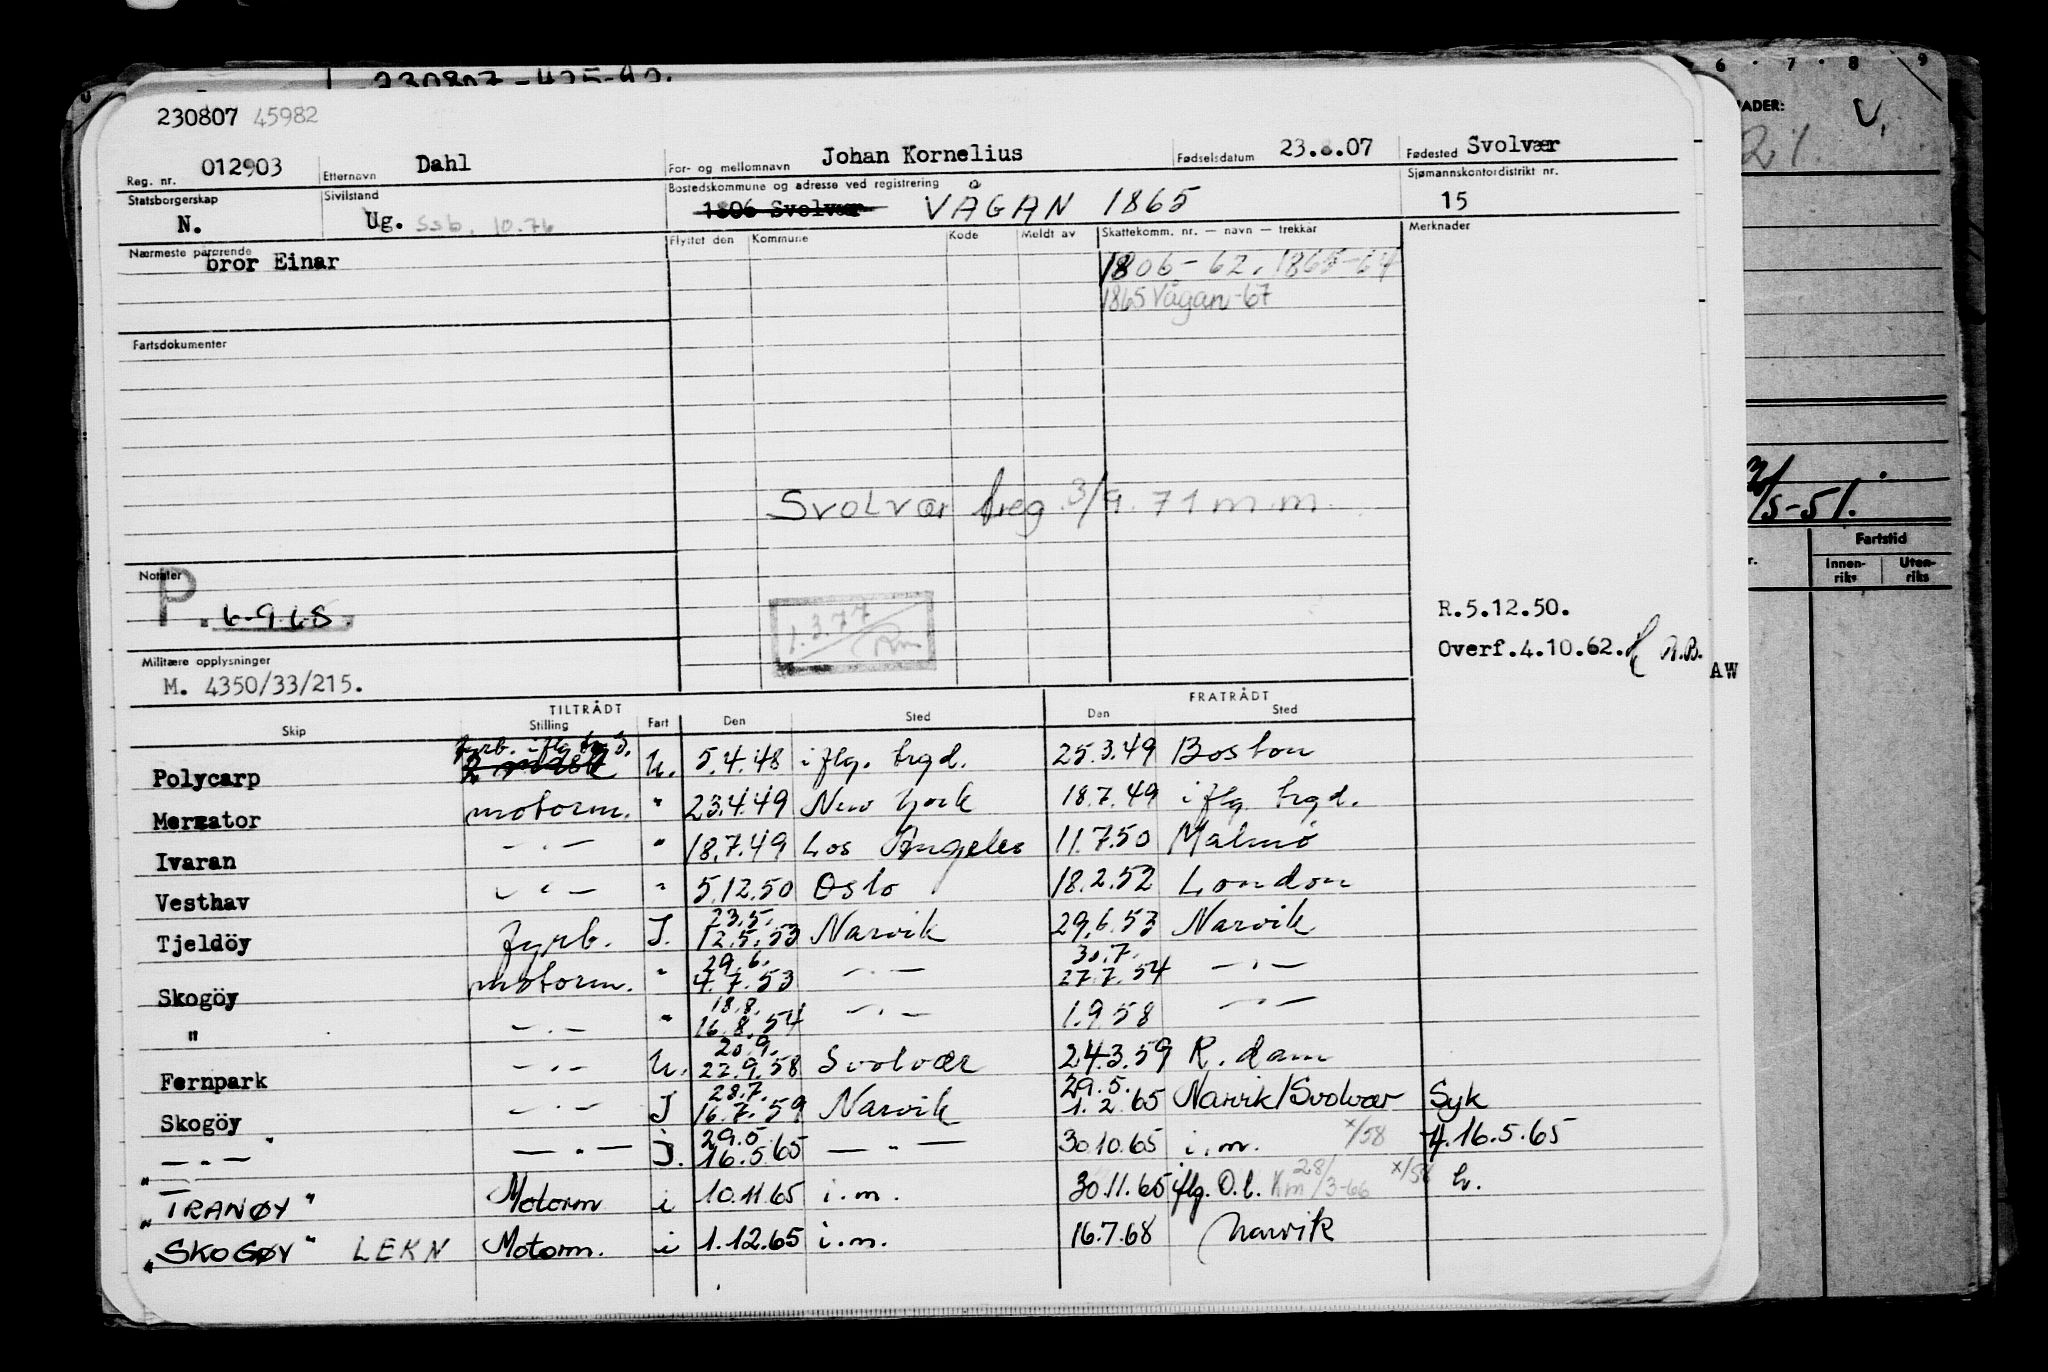 230807 45982
Reg. nr. 012903 Etternavn Dahl For- og mellomnavn Johan Kornelius Fødselsdatum 23.8.07 Fødested Svolvær
Statsborgerskap N. Sivilstand Ug. Ssb. 10.76 Bostedskommune og adresse ved registrering 1806 Svolvær VÅGAN 1865 Sjømannskontordistrikt nr. 15
Nærmeste pårørende bror Einar Flyttet den Kommune Kode Meldt av Skattekomm. nr. — navn — trekkår Merknader
1806-62. 1865-64
1865 Vågan-67
Fartsdokumenter
Svolvær breg 3/9.71 m.m
Notater
P. 6-968.
1.3.77
R.5.12.50.
Overf.4.10.62. A.B. AW
Militære opplysninger
M. 4350/33/215.
TILTRÅDT FRATRÅDT
Skip Stilling Fart Den Sted Den Sted
Polycarp fyrb. iflg brgd. U. 5.4.48 iflg. brgd. 25.3.49 Boston
Mercator motorm. " 23.4.49 New York 18.7.49 iflg. brgd.
Ivaran — . — " 18.7.49 Los Angeles 11.7.50 Malmö
Vesthav — " — " 5.12.50 Oslo 18.2.52 London
Tjeldöy fyrb. I. 23.5. 12.5.53 Narvik 29.6.53 Narvik
Skogöy motorm. " 29.6. 4.7.53 — . — 30.7. 27.7.54 — . —
" — . — " 18.8. 16.8.54 — . — 1.9 58 — . —
Fernpark — . — U. 20.9. 22.9.58 Svolvær 24.3.59 R.dam
Skogöy — . — I 28.7. 16.7.59 Narvik 29.5. 1.2.65 Narvik/Svolvær Syk
— . — " — . — I. 29.5 16.5.65 — " — 30.10.65 i.m. x/58 4.16.5.65
"TRANØY" Motorm i 10.11.65 i.m. 30.11.65 iflg. O.l. Km 28/3-66 x/58
"SKOGØY" LEKN Motorm. i 1.12.65 i.m. 16.7.68 Narvik
6 . 7 . 8 9
NADER: V.
21.
/5-51.
Fartstid
r. Innen-riks Uten-riks